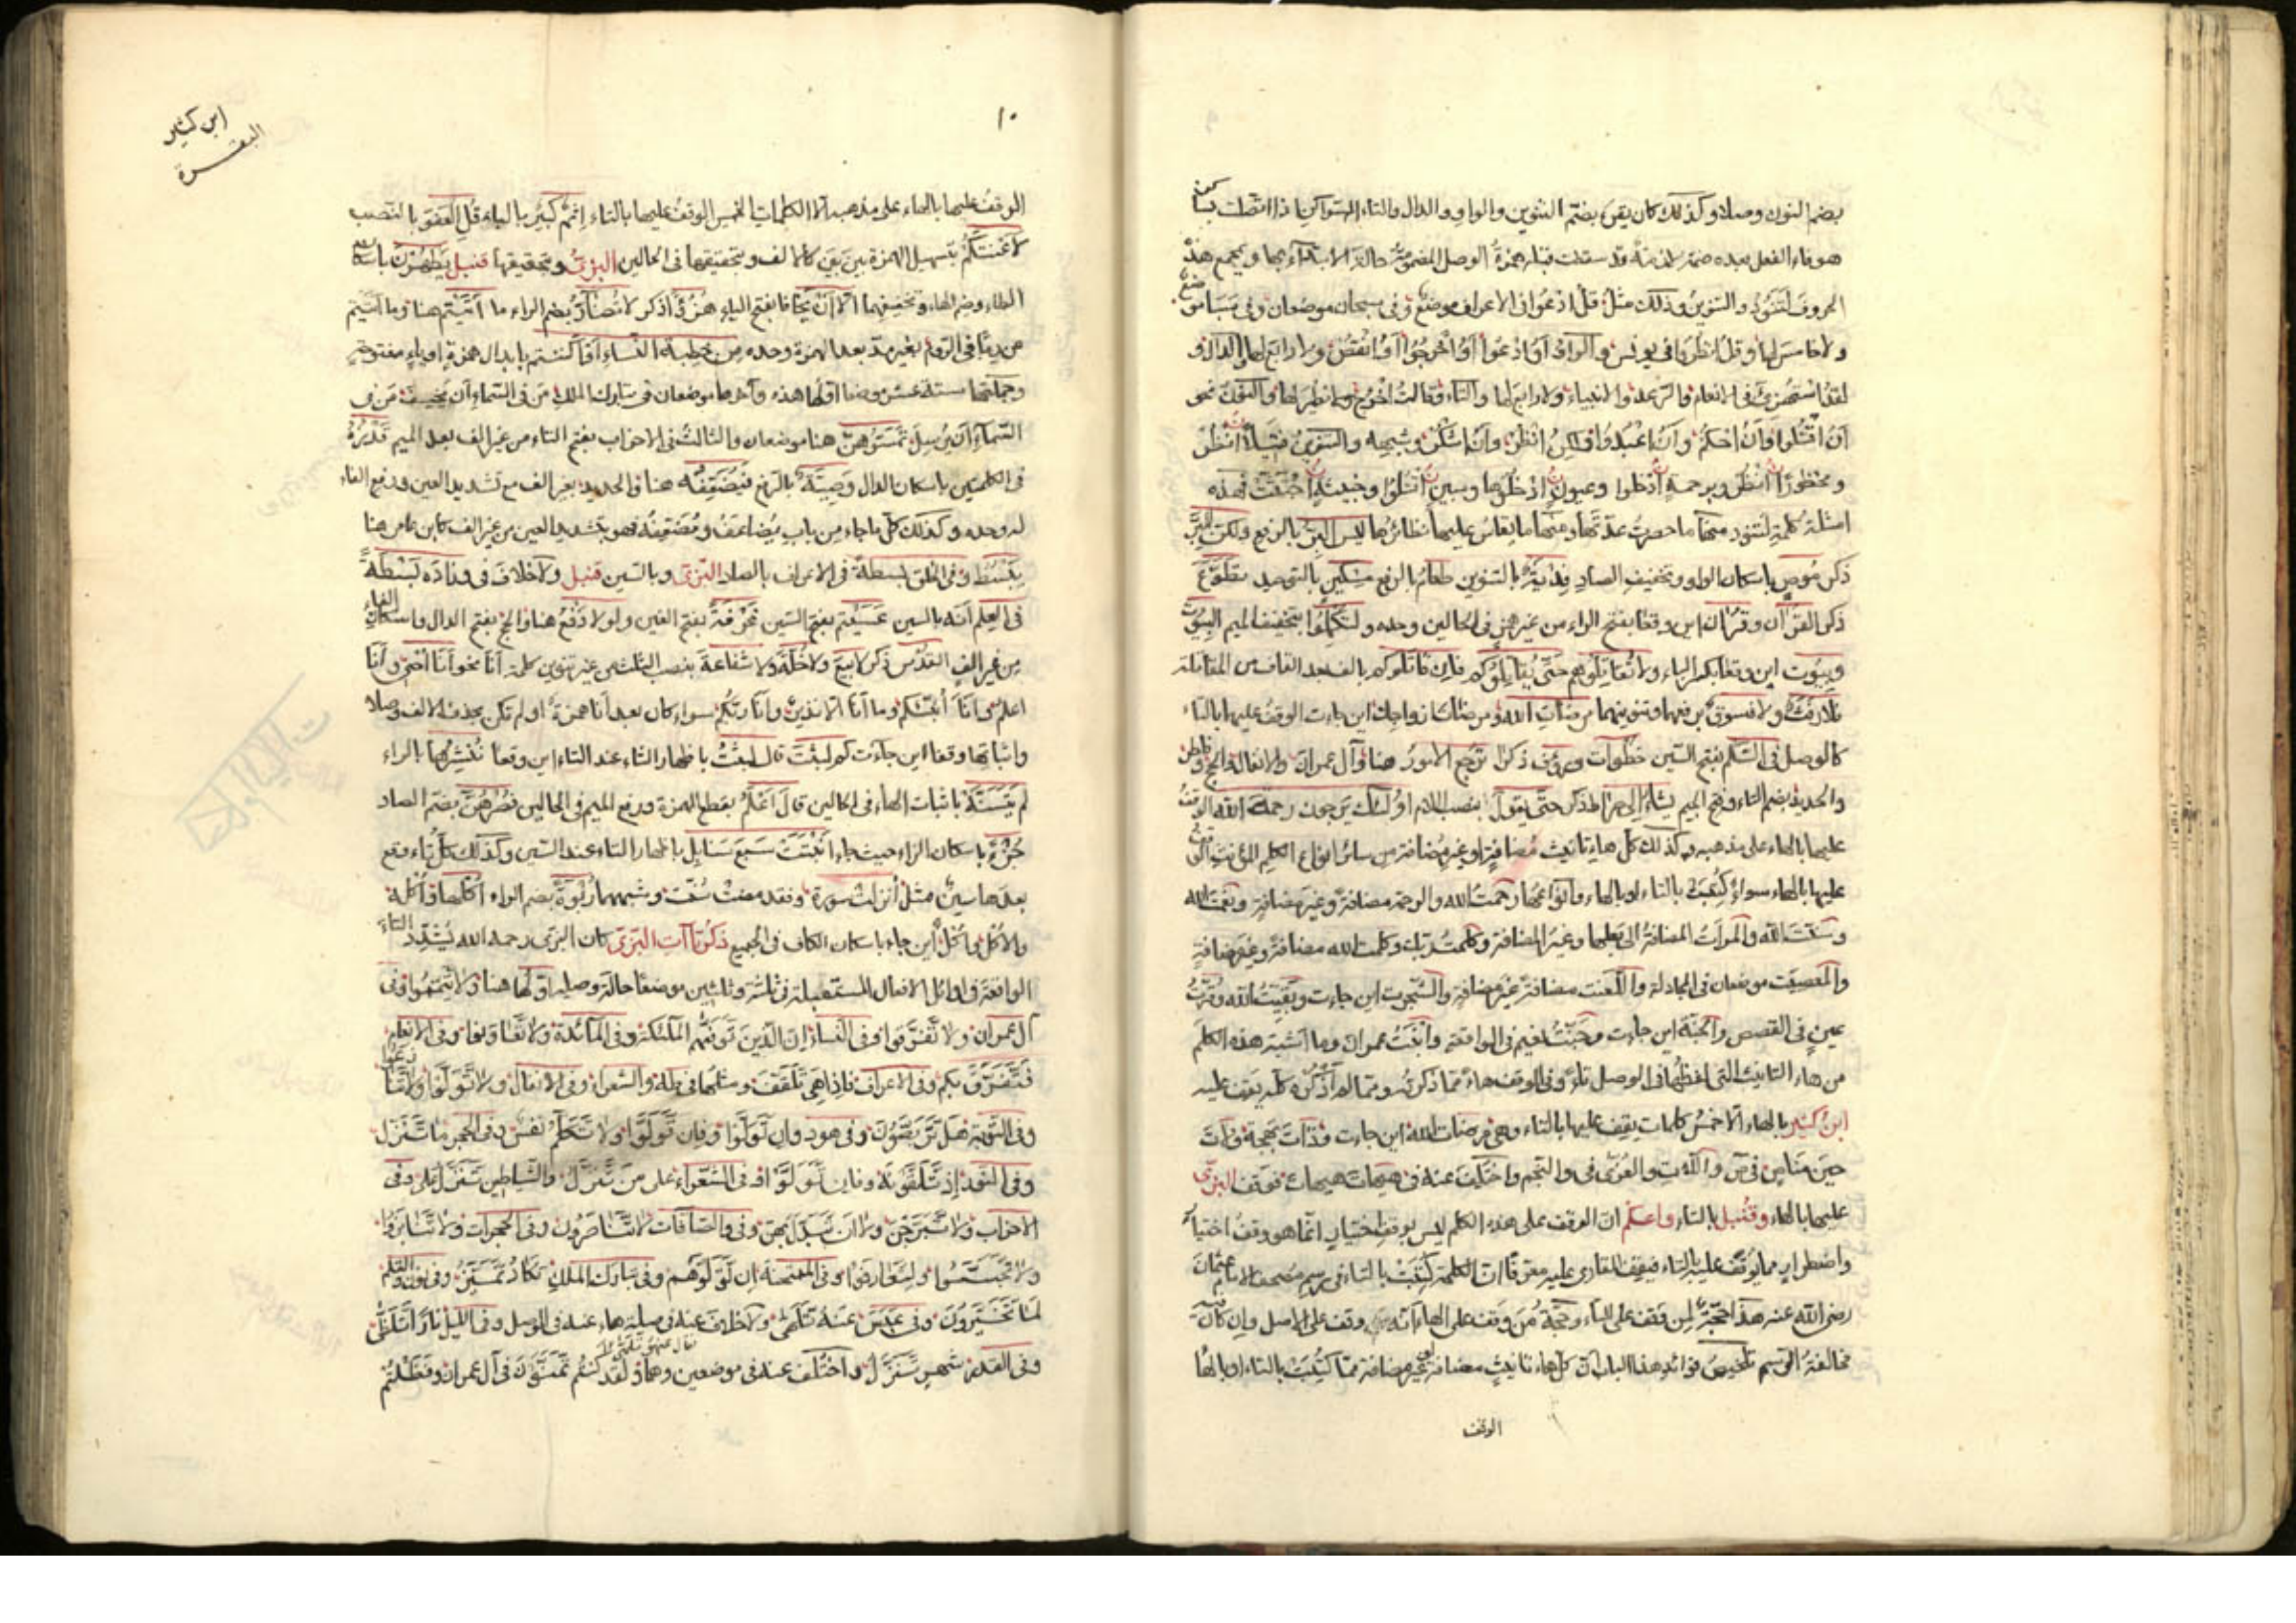 بضم النون وصلا وكذلك كان يقرأ بضم التنوين والواو والدال والتاء السواكن اذا اتصلت
هو فاء الفعل بعده ضمة لازمة وقد سقطت قبله همزة الوصل المضمومة حالة الابتداء بها ويجمع هذه
الحروف لتنود والتنوين وذلك مثل قل ادعوا في الاعراف موضع وفي سبحان موضعان وفي سبا موضع
ولا خامس لها وقل انظروا في يونس والواو او ادعوا او اخرجوا او انقص ولا رابع لها والدال
لقد استهزئ في الانعام والرعد والانبياء ولا رابع لها والتاء وقالت اخرج ولا نظير لها والنون نحو
ان اقتلوا وان احكم وان اعبدوا ولكن انظر وان اشكر وشبهه والتنوين فتيلا انظر
ومحظورا انظر وبرحمة ادخلوا وعيون ادخلوها ومبين اقتلوا وخبيثة اجتثت فهذه
امثلة كلمة لتنود منها ما حصرت عدتها ومنها ما يقاس عليها نظائرها ليس البر بالرفع ولكن البر
ذكر موص باسكان الواو وتخفيف الصاد فدية بالتنوين طعام بالرفع مسكين بالتوحيد تطوع
ذكر القران وقران اين وقعا بفتح الراء من غير همز في الحالين وحده ولتكملوا بتخفيف الميم البيوت
وبيوت اين وقعا بكسر الباء ولا تقاتلوهم حتى يقاتلوكم فان قاتلوكم بالف بعد القاف من المقاتلة
فلا رفث ولا فسوق برفعهما وتنوينهما مرضات الله ومرضات ازواجك اين جاءت الوقف عليها بالتاء
كالوصل في السلم بفتح السين خطوات ورؤف ذكرا ترجع الامور هنا وآل عمران والانفال والحج وفاطر
والحديد بضم التاء وفتح الجيم يشاء الى صراط ذكر حتى يقول بنصب اللام اولئك يرجون رحمة الله الوقف
عليها بالهاء على مذهبه وكذلك كل هاء تانيث مضافة او غير مضافة من سائر انواع الكلم المؤنث الوقف
عليها بالهاء سواء كتبت بالتاء او بالهاء وانواعها رحمت الله والرحمة مضافة وغير مضافة ونعمت الله
وسنت الله وامرات المضافة الى بعلها وغير المضافة وكلمت ربك وكلمت الله مضافة وغير مضافة
والمعصيت موضعان في المجادلة واللعنت مضافة غير مضافة والشجرت اين جاءت وبقيت الله وقرت
عين في القصص والجنة اين جاءت وجنت نعيم في الواقعة وابنت عمران وما اشبه هذه الكلم
من هاء التانيث التي لفظها في الوصل تاء وفي الوقف هاء مما ذكرته ومما لم اذكره كله يقف عليه
ابن كثير بالهاء الا خمس كلمات يقف عليها بالتاء وهي مرضات الله اين جاءت وذات بهجة ولات
حين مناص في ص واللات والعزى في والنجم واختلف عنه في هيهات هيهات فوقف البزي
عليها بالهاء وقنبل بالتاء واعلم ان الوقف على هذه الكلم ليس بوقف اختيار انما هو وقف اختبار
واضطرار مما يوقف عليه بالتاء فيقف القارئ عليه معرفا ان الكلمة كتبت بالتاء في رسم مصحف الامام عثمان
رضي الله عنه هذا حجة لمن وقف على التاء وحجة من وقف على الهاء انه وقف على الاصل وان كانت
مخالفة الرسم تلخيص فوائد هذا الباب ان كل هاء تانيث مضافة او غير مضافة مما كتبت بالتاء او بالها
الوقف
ابن كثير
البقرة
١٠
الوقف عليها بالهاء على مذهبه الا الكلمات الخمس الوقف عليها بالتاء اثم كبير بالباء قل العفو بالنصب
لاعنتكم بتسهيل الهمزة بين بين كالالف وبتحقيقها في الحالين البزي وبتحقيقها قنبل يطهرن باسكان
الطاء وضم الهاء وتخفيفهما الا ان يخافا بفتح الياء هزؤا ذكر لا تضار بضم الراء ما اتيتم هنا وما اتيتم
من ربا في الروم بغير مد بعد الهمزة وحده من خطبة النساء او اكننتم بابدال همزة او ياء مفتوحة
وجملتها ستة عشر موضعا اولها هذه وآخرها موضعان في تبارك الملك من في السماء ان يخسف من في
السماء ان يرسل تمسوهن هنا موضعان والثالث في الاحزاب بفتح التاء من غير الف بعد الميم قدره
في الكلمتين باسكان الدال وصية بالرفع فيضعفه هنا والحديد بغير الف مع تشديد العين ورفع الفاء
له وحده وكذلك كل ما جاء من باب يضاعف ومضعفة فهو بتشديد العين من غير الف كابن عامر هنا
يبسط وفي الخلق بسطة في الاعراف بالصاد البزي وبالسين قنبل ولا خلاف في وزاده بسطة
في العلم انه بالسين عسيتم بفتح السين غرفة بفتح الغين ولولا دفع هنا والحج بفتح الدال واسكان الفاء
من غير الف القدس ذكر لا بيع ولا خلة ولا شفاعة بنصب الثلث من غير تنوين كلمة انا نحو انا احيي وانا
اعلم وانا انبئكم وما انا الا نذير وانا ربكم سواء كان بعد انا همزة او لم تكن بحذف الالف وصلا
واثباتها وقفا اين جاءت كم لبثت قال لبثت باظهار الثاء عند التاء اين وقعا ننشرها بالراء
لم يتسنه باثبات الهاء في الحالين قال اعلم بقطع الهمزة ورفع الميم في الحالين فصرهن بضم الصاد
جزء باسكان الزاء حيث جاء انبتت سبع سنابل باظهار التاء عند السين وكذلك كل تاء وقع
بعدها سين مثل انزلت سورة وفقد مضت سنت وشبههما ربوة بضم الراء اكلها واكله
والاكل واكل اين جاء باسكان الكاف في الجميع ذكر تاآت البزي كان البزي رحمه الله يشدد التاء
الواقعة في اوائل الافعال المستقبلة في ثلثة وثلثين موضعا حالة وصله اولها هنا ولا تيمموا وفي
آل عمران ولا تفرقوا وفي النساء ان الذين توفهم الملئكة وفي المائدة ولا تعاونوا وفي الانعام
فتفرق بكم وفي الاعراف فاذا هي تلقف ومثلها في طه والشعراء وفي الانفال ولا تولوا ولا تنازعوا
وفي التوبة هل تربصون وفي هود وان تولوا وفان تولوا ولا تكلم نفس وفي الحجر ما تنزل
وفي النور اذ تلقونه وفان تولوا وفي الشعراء على من تنزل والشياطين تنزل على وفي
الاحزاب ولا تبرجن ولا ان تبدل بهن وفي والصافات لا تناصرون وفي الحجرات ولا تنابزوا
ولا تجسسوا ولتعارفوا وفي الممتحنة ان تولوهم وفي تبارك الملك تكاد تميز وفي ن والقلم
لما تخيرون وفي عبس عنه تلهى ولا خلاف عنه في صلة هاء عنه في الوصل وفي الليل نارا تلظى
وفي القدر شهر تنزل واختلف عنه في موضعين وهما ولقد كنتم تمنون في آل عمران وفظلتم